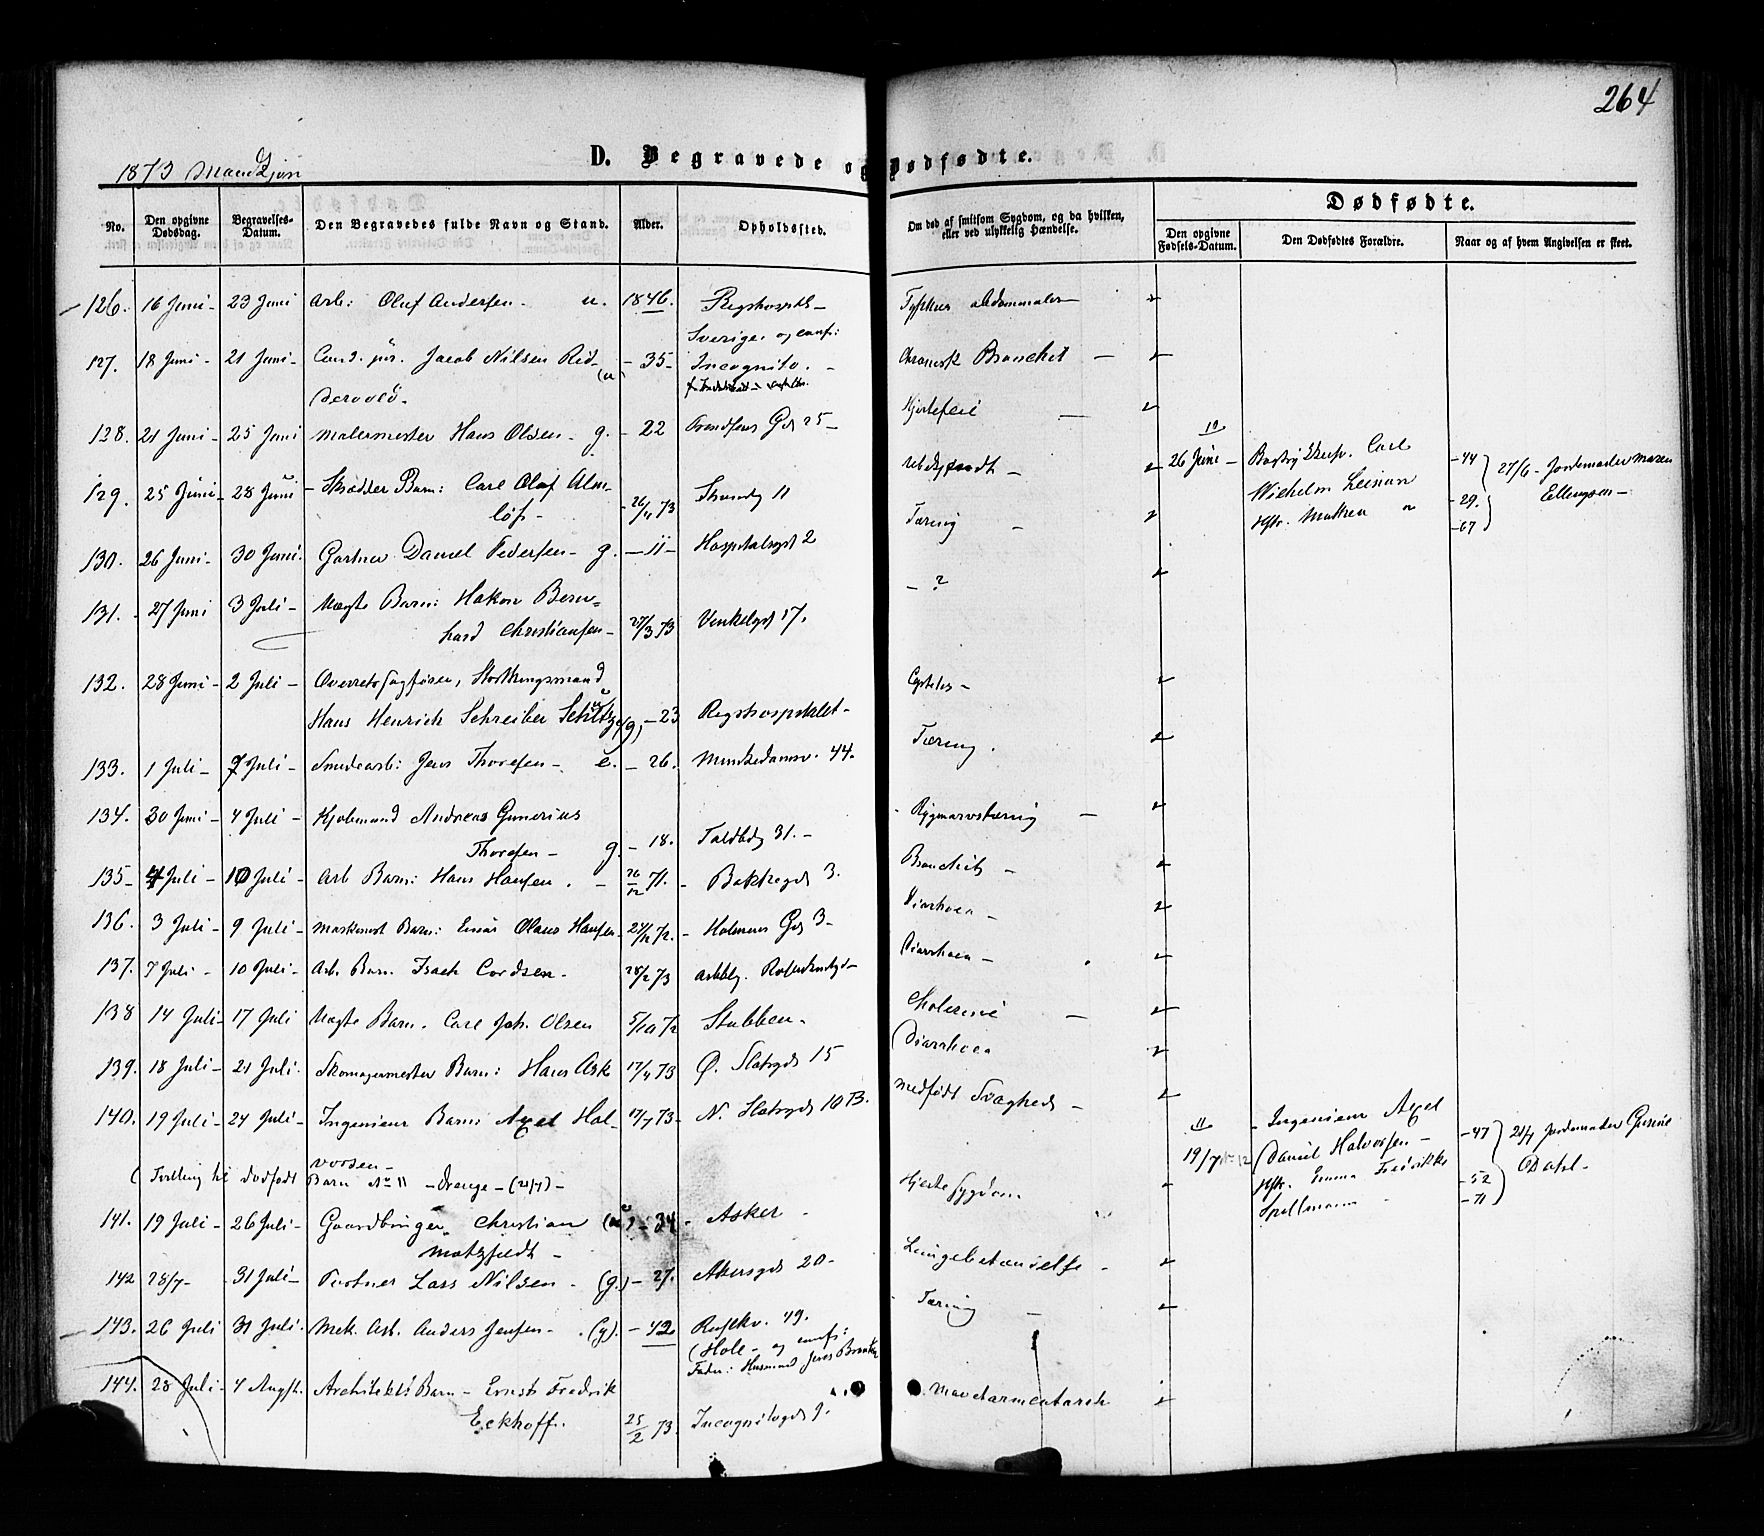 264
1873 Mandkjøn
D. Begravede og Dødfødte.
No.
Den opgivne Dødsdag.
Begravelses-Datum.
Den Begravedes fulde Navn og Stand.
Alder.
Opholdssted.
Om død af smitsom Sygdom, og da hvilken, eller ved ulykkelig Hændelse.
Dødfødte.
Den opgivne Fødsels-Datum.
Den Dødfødtes Forældre.
Naar og af hvem Angivelsen er skeet.
126. 16 Juni - 23 Juni Arb: Oluf Andersen - u. 1846. Rigshospit - Typhus abdominalis
Sverige og conf:
127. 18 Juni - 21 Juni - Cand. jur. Jacob Nilsen Rid- (u) - 35 - Incognito. - Chronisk Bronchit -
dervold.
128. 21 Juni - 25 Juni Malermester Hans Olsen - g. - 22 Arendsens Gd 25 - Hjertefeil -
129. 25 Juni - 28 Juni - Skrædder Barn: Carl Oluf Alm- 26/4 73 Strandg 11 Ubekjendt -
løf -
12 26 Juni - Carl -44 27/6 - Jordemoder Maren
Wilhelm -29. Ellingsen -
Hstr. -67
130. 26 Juni - 30 Juni. Gartner Daniel Pedersen - g. - 11 - Hospitalsgd 2 Tæring -
131. - 27 Juni 3 Juli - Uægte Barn: Hakon Bern- - ?
hard Christiansen - 27/3 73 Vinkelgd 17.
132. 28 Juni - 2 Juli - Overretssagfører, Storthingsmand
Hans Henrich Schreiber Schültz (g) - 23 Rigshospitalet -
133. 1 Juli - 7 Juli - Smedearb: Jens Thoresen - e. - 26. Munkedamsv. 44. Tæring.
134. 30 Juni - 4 Juli - Kjøbmand Andreas Gunerius
Thoresen - g. - 18. Toldbdg 31. - Rygmarvstæring -
135 - 4 Juli - 10 Juli - Arb Barn: Hans Hansen. - 26/12 71. - Bakkegd 3. Bronchit -
136. 3 Juli - 9 Juli - Maskinist Barn: Einar Olaus Hansen 24/12 72. - Holmens Gd 3 - Diarrhoea -
137. 7 Juli - 10 Juli - Arb. Barn Isach Cordsen - 28/2 73 Arbbg. Rosenkrdgd - Diarrhoea -
138 14 Juli - 17 Juli Uægte Barn. Carl Joh. Olsen 5/10 72 Stubben. Cholerine -
139. 18 Juli - 21 Juli. Skomagermester Barn: Hans Ask 17/4 73 Ø. Slotsgd 15 Diarrhoea
140. 19 Juli - 24 Juli - Ingenieur Barn: Axel Hal- 17/7 73 - N. Slotsgd 10 B. Medfødt Svaghed -
vorsen -
(Tvilling til dødfødt Barn No 11 - Drenge - (21/7) -
11 19/7 No 12 - Ingenieur Axel Daniel Halvorsen - -47 21/7 Jordemoder Gurine
Hstr. Emma Fredrikke -52 Dahl -
Spellmann -71
141. 19 Juli - 26 Juli - Gaardbruger Christian (u) - 34 - Asker - Hjertesygdom
Motzfeldt -
142 28/7 - 31 Juli - Portner Lars Nilsen - (g.) - 27. Akersgd 20 - Lungebetændelse -
143. 26 Juli 31 Juli. Mek. Arb. Anders Jensen - (g). - 42 Rusløkv. 49. Tæring -
(Hole - og conf:
Fader: Husmand Jens
144. 28 Juli - 4 Augst. Architekts Barn - Ernst Fredrik Mavetarmcatarrh
Eckhoff. 25/2 73. Incognitogd 9.